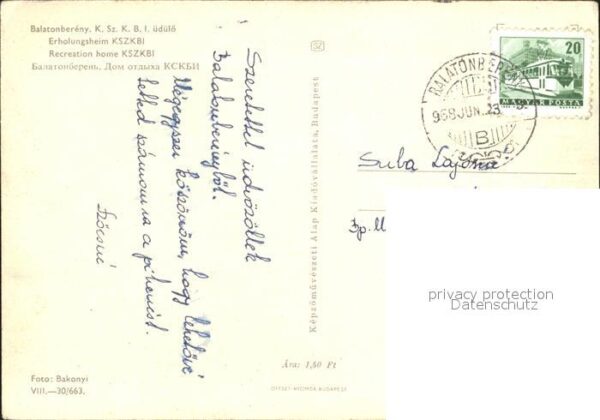 Balatonberény, K. Sz. K. B. I. üdülő
Erholungsheim KSZKBI
Recreation home KSZKBI
Балатонберень, Дом отдыха КСКБИ
Szeretettel üdvözöllek
Balatonberényből.
Mégegyszer köszönöm, hogy lehetővé
tetted számomra a pihenést.
Szőcsné
Foto: Bakonyi
VIII.—30/663.
Képzőművészeti Alap Kiadóvállalata, Budapest
Ára: 1,50 Ft
OFFSET-NYOMDA BUDAPEST
BALATONBERÉNY
968 JUN. 23
B
20
MAGYAR POSTA
Suba Lajosné
Bp.
privacy protection
Datenschutz